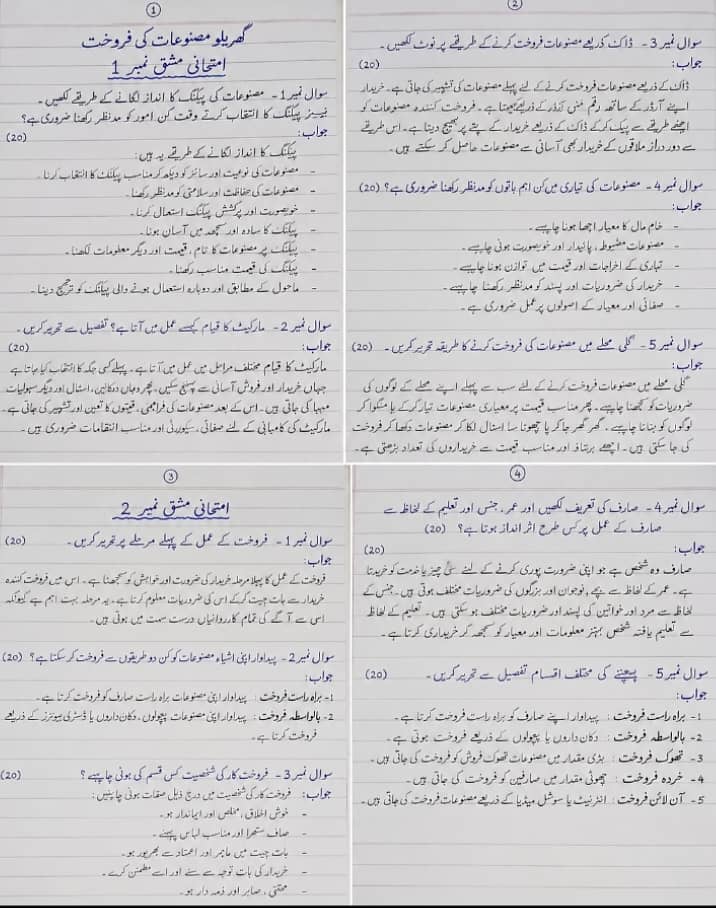 ①
گھریلو مصنوعات کی فروخت
امتحانی مشق نمبر 1
سوال نمبر 1- مصنوعات کی پیکنگ کا انداز لگانے کے طریقے لکھیں۔
نیز پیکنگ کا انتخاب کرتے وقت کن امور کو مدنظر رکھنا ضروری ہے؟
(20)
جواب:
پیکنگ کا انداز لگانے کے طریقے یہ ہیں:
- مصنوعات کی نوعیت اور سائز کو دیکھ کر مناسب پیکنگ کا انتخاب کرنا۔
- مصنوعات کی حفاظت اور سلامتی کو مدنظر رکھنا۔
- خوبصورت اور پرکشش پیکنگ استعمال کرنا۔
- پیکنگ کا سادہ اور سمجھ میں آسان ہونا۔
- پیکنگ پر مصنوعات کا نام، قیمت اور دیگر معلومات لکھنا۔
- پیکنگ کی قیمت مناسب رکھنا۔
- ماحول کے مطابق اور دوبارہ استعمال ہونے والی پیکنگ کو ترجیح دینا۔
سوال نمبر 2- مارکیٹ کا قیام کیسے عمل میں آتا ہے؟ تفصیل سے تحریر کریں۔
جواب: (20)
مارکیٹ کا قیام مختلف مراحل میں عمل میں آتا ہے۔ پہلے کسی جگہ کا انتخاب کیا جاتا ہے
جہاں خریدار اور فروش آسانی سے پہنچ سکیں۔ پھر وہاں دکانیں، اسٹال اور دیگر سہولیات
مہیا کی جاتی ہیں۔ اس کے بعد مصنوعات کی فراہمی، قیمتوں کا تعین اور تشہیر کی جاتی ہے۔
مارکیٹ کی کامیابی کے لئے صفائی، سیکورٹی اور مناسب انتظامات ضروری ہیں۔
②
سوال نمبر 3- ڈاک کے ذریعے مصنوعات فروخت کرنے کے طریقے پر نوٹ لکھیں۔
جواب: (20)
ڈاک کے ذریعے مصنوعات فروخت کرنے کے لئے پہلے مصنوعات کی تشہیر کی جاتی ہے۔ خریدار
اپنے آرڈر کے ساتھ رقم منی آرڈر کے ذریعے بھیجتا ہے۔ فروخت کنندہ مصنوعات کو
اچھے طریقے سے پیک کر کے ڈاک کے ذریعے خریدار کے پتے پر بھیج دیتا ہے۔ اس طریقے
سے دور دراز علاقوں کے خریدار بھی آسانی سے مصنوعات حاصل کر سکتے ہیں۔
سوال نمبر 4- مصنوعات کی تیاری میں کن اہم باتوں کو مدنظر رکھنا ضروری ہے؟ (20)
جواب:
- خام مال کا معیار اچھا ہونا چاہیے۔
- مصنوعات مضبوط، پائیدار اور خوبصورت ہونی چاہیے۔
- تیاری کے اخراجات اور قیمت میں توازن ہونا چاہیے۔
- خریدار کی ضروریات اور پسند کو مدنظر رکھنا چاہیے۔
- صفائی اور معیار کے اصولوں پر عمل ضروری ہے۔
سوال نمبر 5- گلی محلے میں مصنوعات کی فروخت کرنے کا طریقہ تحریر کریں۔ (20)
جواب:
گلی محلے میں مصنوعات فروخت کرنے کے لئے سب سے پہلے اپنے محلے کے لوگوں کی
ضروریات کو سمجھنا چاہیے۔ پھر مناسب قیمت پر معیاری مصنوعات تیار کر کے یا منگوا کر
لوگوں کو بتانا چاہیے۔ گھر گھر جا کر یا چھوٹا سا اسٹال لگا کر مصنوعات دکھا کر فروخت
کی جا سکتی ہیں۔ اچھے برتاؤ اور مناسب قیمت سے خریداروں کی تعداد بڑھتی ہے۔
③
امتحانی مشق نمبر 2
سوال نمبر 1- فروخت کے عمل کے پہلے مرحلے پر تحریر کریں۔ (20)
جواب:
فروخت کے عمل کا پہلا مرحلہ خریدار کی ضرورت اور خواہش کو سمجھنا ہے۔ اس میں فروخت کنندہ
خریدار سے بات چیت کر کے اس کی ضروریات معلوم کرتا ہے۔ یہ مرحلہ بہت اہم ہے کیونکہ
اسی سے آگے کی تمام کارروائیاں درست سمت میں ہوتی ہیں۔
سوال نمبر 2- پیداوار اپنی اشیاء مصنوعات کو کن دو طریقوں سے فروخت کر سکتا ہے؟ (20)
جواب:
1- براہ راست فروخت: پیداوار اپنی مصنوعات براہ راست صارف کو فروخت کرتا ہے۔
2- بالواسطہ فروخت: پیداوار اپنی مصنوعات بیچولوں، دکان داروں یا ڈسٹری بیوٹرز کے ذریعے
فروخت کرتا ہے۔
سوال نمبر 3- فروخت کار کی شخصیت کس قسم کی ہونی چاہیے؟ (20)
جواب: فروخت کار کی شخصیت میں درج ذیل صفات ہونی چاہئیں:
- خوش اخلاق، مخلص اور ایماندار ہو۔
- صاف ستھرا اور مناسب لباس پہنے۔
- بات چیت میں ماہر اور اعتماد سے بھرپور ہو۔
- خریدار کی بات توجہ سے سنے اور اسے مطمئن کرے۔
- محنتی، صابر اور ذمہ دار ہو۔
④
سوال نمبر 4- صارف کی تعریف لکھیں اور عمر، جنس اور تعلیم کے لحاظ سے
صارف کے عمل پر کس طرح اثر انداز ہوتا ہے؟ (20)
جواب: (20)
صارف وہ شخص ہے جو اپنی ضرورت پوری کرنے کے لئے کسی چیز یا خدمت کو خریدتا
ہے۔ عمر کے لحاظ سے بچے، نوجوان اور بزرگوں کی ضروریات مختلف ہوتی ہیں۔ جنس کے
لحاظ سے مرد اور خواتین کی پسند اور ضروریات مختلف ہو سکتی ہیں۔ تعلیم کے لحاظ
سے تعلیم یافتہ شخص بہتر معلومات اور معیار کو سمجھ کر خریداری کرتا ہے۔
سوال نمبر 5- بیچنے کی مختلف اقسام تفصیل سے تحریر کریں۔ (20)
جواب:
1- براہ راست فروخت: پیداوار اپنے صارف کو براہ راست فروخت کرتا ہے۔
2- بالواسطہ فروخت: دکان داروں یا بیچولوں کے ذریعے فروخت ہوتی ہے۔
3- تھوک فروخت: بڑی مقدار میں مصنوعات تھوک فروش کو فروخت کی جاتی ہیں۔
4- خردہ فروخت: چھوٹی مقدار میں صارفین کو فروخت کی جاتی ہیں۔
5- آن لائن فروخت: انٹرنیٹ یا سوشل میڈیا کے ذریعے مصنوعات فروخت کی جاتی ہیں۔